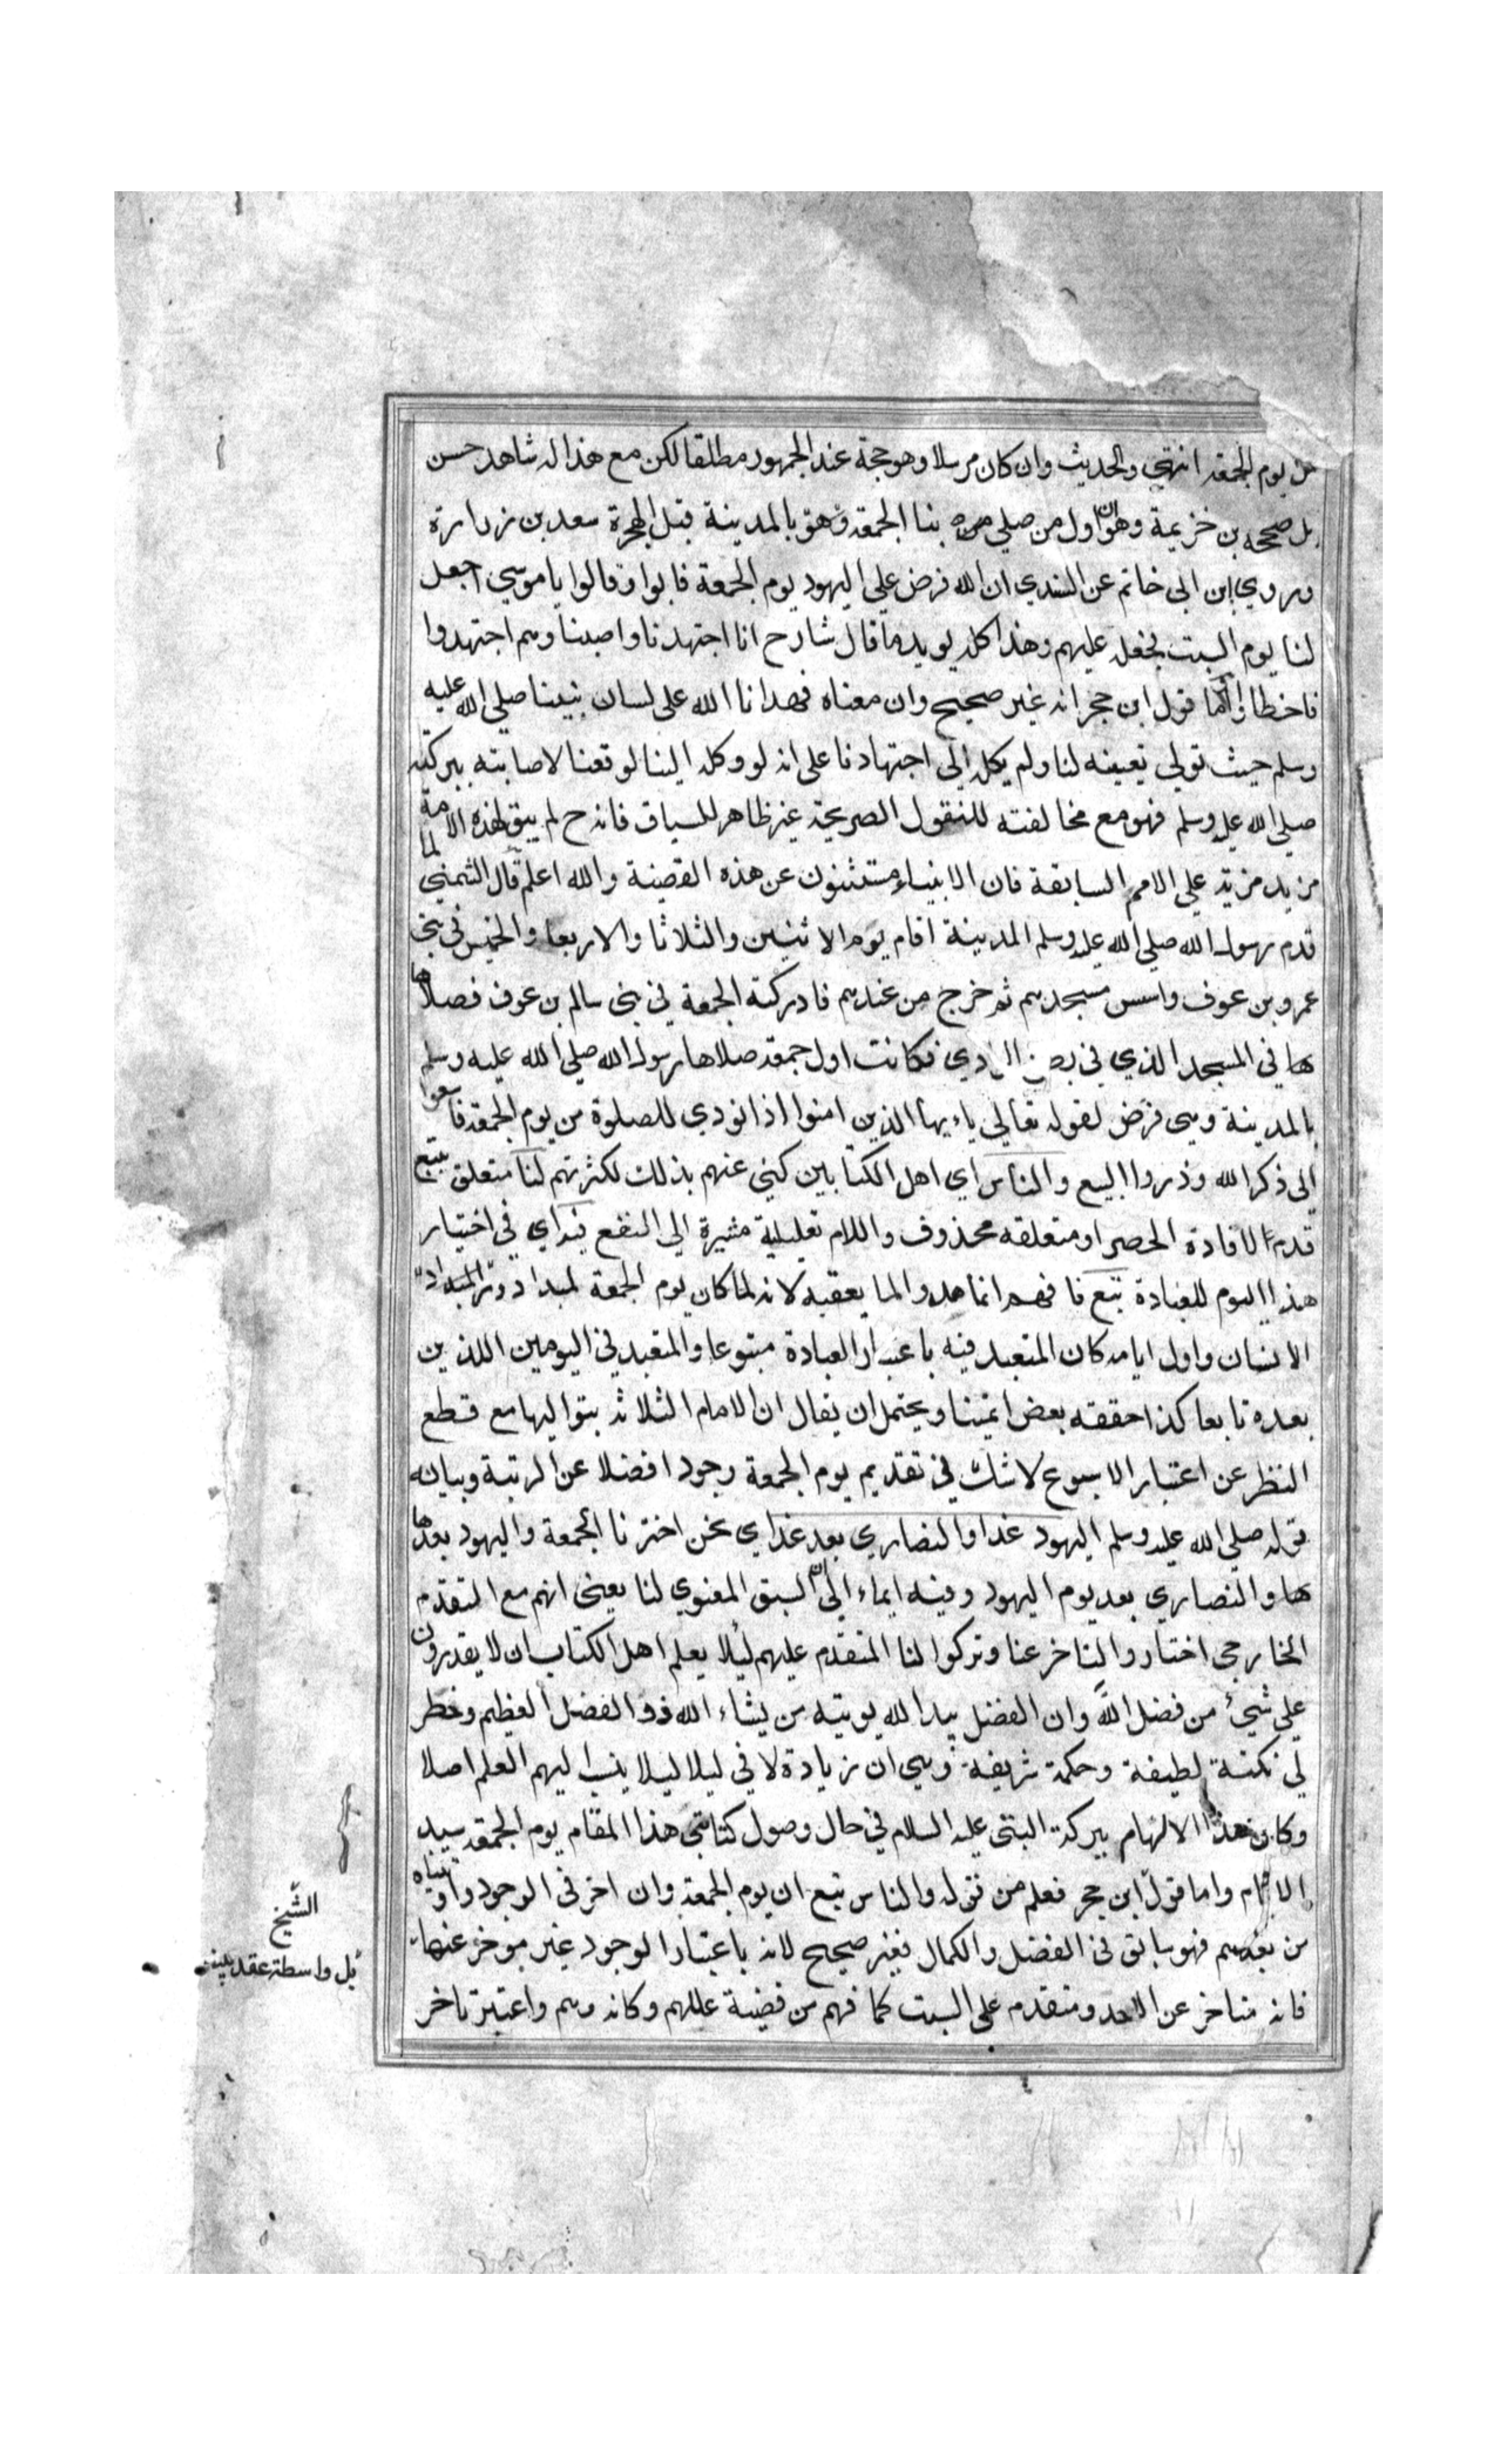 يوم الجمعة انتهي والحديث وان كان مرسلا وهو حجة عند الجمهور مطلقا لكن مع هذا له شاهد حسن
بل صححه بن خزيمة وهو ان اول من صلي بنا الجمعة بالمدينة قبل الهجرة سعد بن زرارة
وروي ابن ابي خاتم عن السدي ان الله فرض علي اليهود يوم الجمعة فابوا وقالوا ياموسي اجعل
لنا يوم السبت فجعل عليهم وهذا كله يويد ما قال شارح انا اجتهدنا واصبنا وهم اجتهدوا
فاخطاوا واما قول ابن حجر انه غير صحيح وان معناه فهدانا الله علي لسان نبينا صلي الله عليه
وسلم حيث تولي تعيينه لنا ولم يكله الي اجتهادنا علي انه لو وكله الينا لوقعنا لاصابته ببركته
صلي الله عليه وسلم فهو مع مخالفته للنقول الصريحة غير ظاهر للسياق فانه ح لم يبق لهذه الامة
مزيد مزية علي الامم السابقة فان الانبياء مستثنون عن هذه القضية والله اعلم قال الشمني لما
قدم رسول الله صلي الله عليه وسلم المدينة اقام يوم الاثنين والثلاثا والاربعا والخميس في بني
عمرو بن عوف واسس مسجدهم ثم خرج من عندهم فادركته الجمعة في بني سالم بن عوف فصلاها
ها في المسجد الذي في فكانت اول جمعة صلاها رسول الله صلي الله عليه وسلم
بالمدينة وهي فرض لقوله تعالي ياءيها الذين امنوا اذا نودي للصلوة من يوم الجمعة فاسعوا
الي ذكر الله وذروا البيع والناس اي اهل الكتابين كني عنهم بذلك لكثرتهم لنا متعلق بتبع
قدم لافادة الحصر او متعلقه محذوف واللام تعليلية مشيرة الي النفع فيه اي في اختيار
هذا اليوم للعبادة تبع فا لما يعقبه لانه لما كان يوم الجمعة
الانسان واول ايامه كان المتعبد فيه باعتبار العبادة متبوعا والمتعبد في اليومين اللذين
بعده تابعا كذا حققه بعض ايمتنا ويحتمل ان يقال ان الايام الثلاثة بتواليها مع قطع
النظر عن اعتبار الاسبوع لا شك في تقديم يوم الجمعة وجودا فضلا عن الرتبة وبيانه
قوله صلي الله عليه وسلم اليهود غدا والنصاري بعد غد اي نحن اخترنا الجمعة واليهود بعدها
ها والنصاري بعد يوم اليهود وفيه ايماء الي ان السبق المعنوي لنا يعني انهم مع التقدم
الخارجي اختاروا التاخر عنا وتركوا لنا المتقدم عليهم ليلا يعلم اهل الكتاب ان لا يقدرون
علي شيء من فضل الله وان الفضل بيد الله يويته من يشاء الله ذو الفضل العظيم وخطر
لي نكتة لطيفة وحكمة شريفة وهي ان زيادة لا في ليلا ليلا ينسب اليهم العلم اصلا
وكان هذا الالهام ببركة النبي عليه السلام في حال وصول كتابتي هذا المقام يوم الجمعة سيد
الايام واما قول ابن حجر فعلم من قوله والناس تبع ان يوم الجمعة وان اخر في الوجود واوتيناه
من بعدهم فهو سابق في الفضل والكمال فغير صحيح لانه باعتبار الوجود غير موخر عنها
فانه متاخر عن الاحد ومتقدم علي السبت كما فهم من قضية عللهم وكانه وهم واعتبر تاخر
الشيخ
بل واسطة عقد